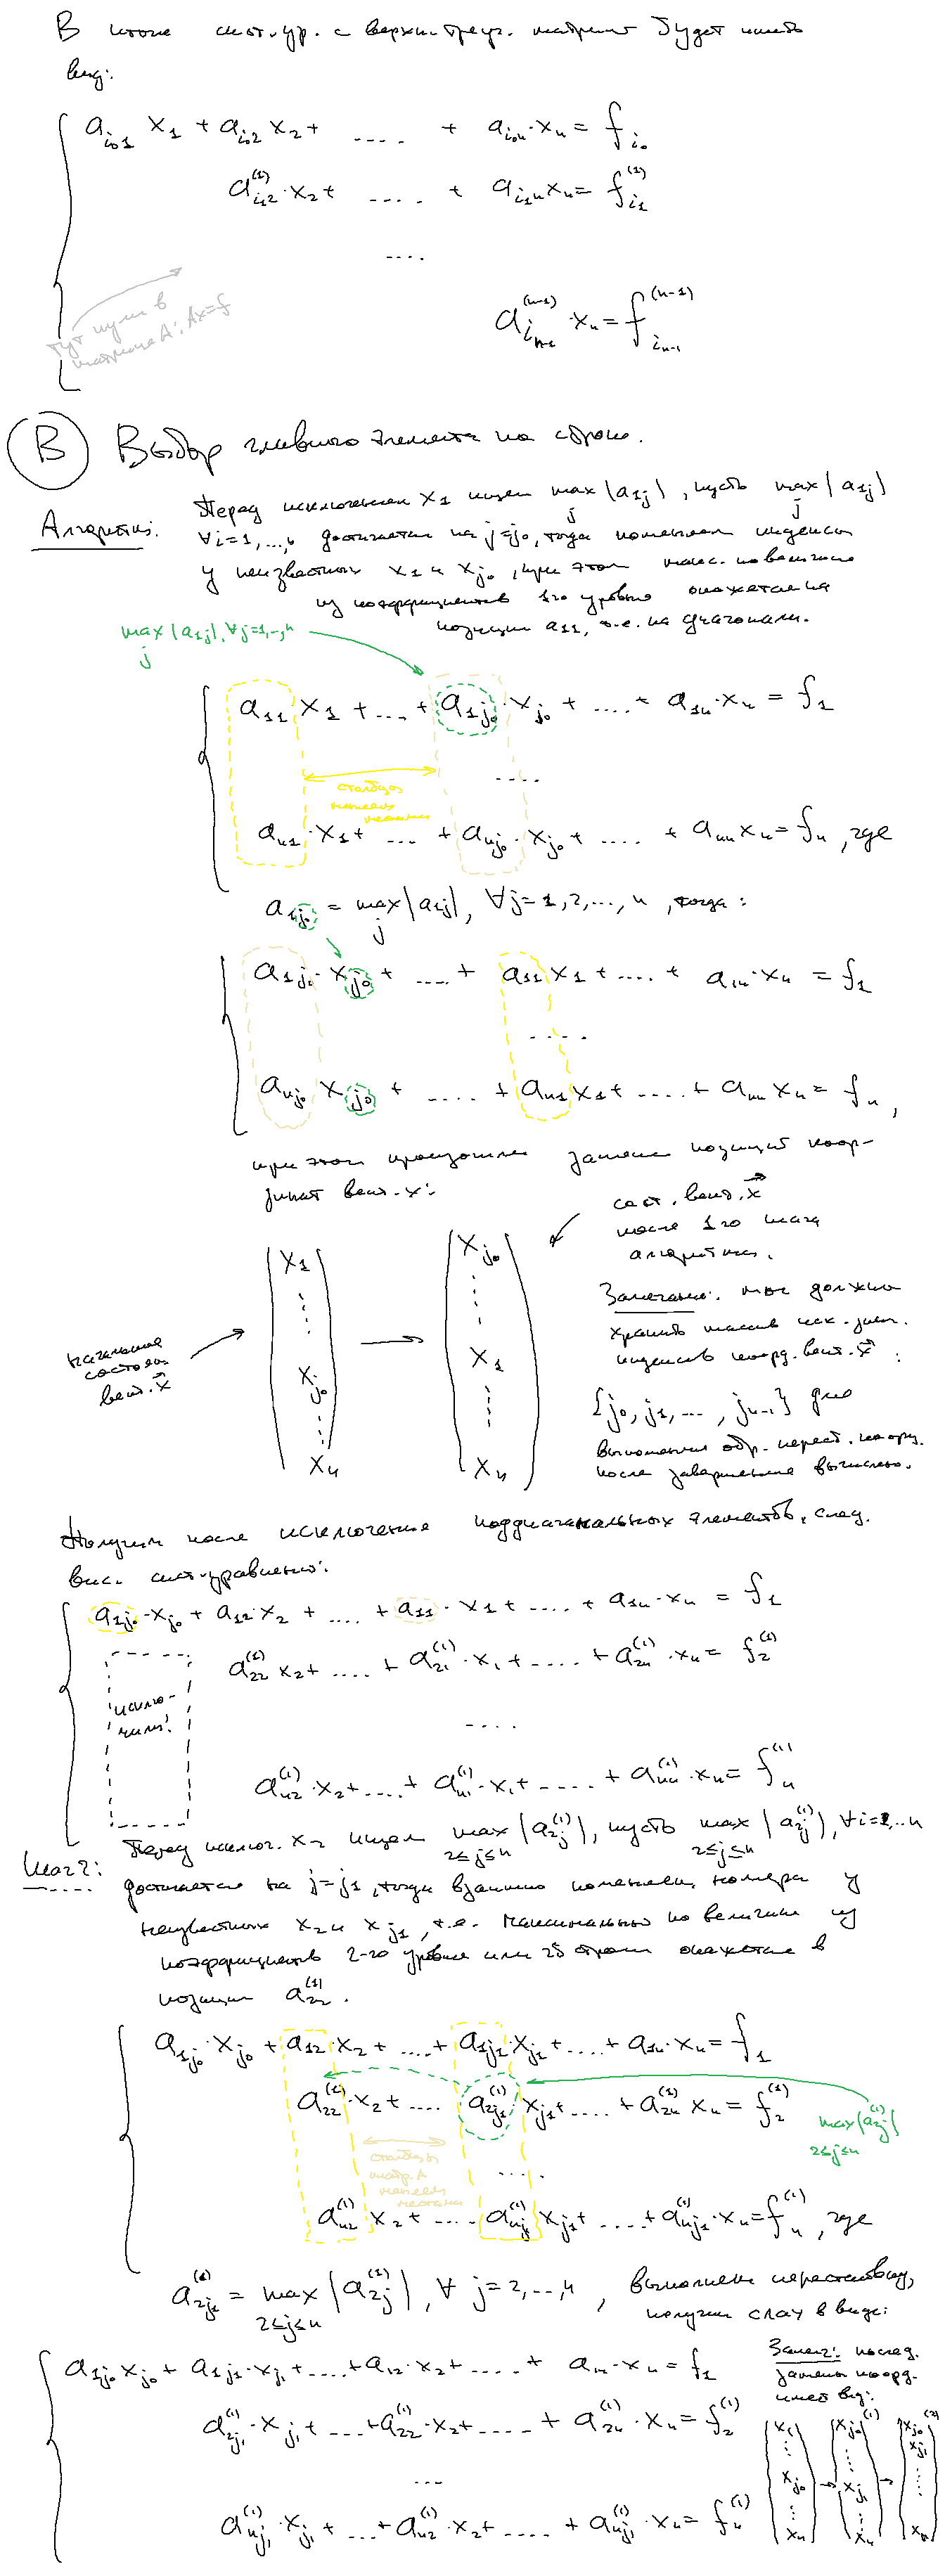 В итоге сист. ур. с верхн. треуг. матрицей будет иметь
вид:
a_{i_0 1} x_1 + a_{i_0 2} x_2 + .... + a_{i_0 n} · x_n = f_{i_0}
a_{i_1 2}^{(1)} · x_2 + .... + a_{i_1 n} x_n = f_{i_1}^{(1)}
....
a_{i_{n-1}}^{(n-1)} · x_n = f_{i_{n-1}}^{(n-1)}
тут нули в
матрице A: Ax=f
(B) Выбор главного элемента по строке.
Алгоритм: Перед исключением x_1 ищем max_j |a_{1j}|, пусть max_j |a_{1j}|
∀i=1,...,n достигается на j=j_0, тогда поменяем индексы
у неизвестных x_1 и x_{j_0}, при этом макс. по величине
из коэффициентов 1го уровня окажется на
позиции a_{11}, т.е. на диагонали.
max_j |a_{1j}|, ∀j=1,..,n
a_{11} x_1 + ... + a_{1j_0} · x_{j_0} + .... + a_{1n} · x_n = f_1
....
столбцы
меняем
местами
a_{n1} · x_1 + ... + a_{nj_0} · x_{j_0} + .... + a_{nn} x_n = f_n, где
a_{1j_0} = max_j |a_{1j}|, ∀j=1,2,...,n, тогда:
a_{1j_0} · x_{j_0} + .... + a_{11} x_1 + .... + a_{1n} · x_n = f_1
.....
a_{nj_0} x_{j_0} + .... + a_{n1} x_1 + .... + a_{nn} x_n = f_n,
при этом произошла замена позиций коор-
динат вект. x:
сост. вект. x⃗
после 1го шага
алгоритма.
начальное
состояние
вект. x⃗
x_1
⋮
x_{j_0}
⋮
x_n
→
x_{j_0}
⋮
x_1
⋮
x_n
Замечание: мы должны
хранить массив
индексов коорд. вект. x⃗:
{j_0, j_1, ..., j_{n-1}} для
выполнения обр. перест. коорд.
после завершения вычислений.
Получим после исключения поддиагональных элементов, след.
вид. сист. уравнений:
a_{1j_0} · x_{j_0} + a_{12} · x_2 + .... + a_{11} · x_1 + .... + a_{1n} · x_n = f_1
a_{22}^{(1)} x_2 + .... + a_{21}^{(1)} · x_1 + .... + a_{2n}^{(1)} · x_n = f_2^{(1)}
исклю-
чили!
....
a_{n2}^{(1)} · x_2 + .... + a_{n1}^{(1)} · x_1 + .... + a_{nn}^{(1)} · x_n = f_n^{(1)}
Шаг 2: Перед исключ. x_2 ищем max_{2≤j≤n} |a_{2j}^{(1)}|, пусть max_{2≤j≤n} |a_{2j}^{(1)}|, ∀i=2,..n
достигается на j=j_1, тогда взаимно поменяем номера у
неизвестных x_2 и x_{j_1}, т.е. максимальный по величине из
коэффициентов 2-го уровня или 2й строки окажется в
позиции a_{22}^{(1)}.
a_{1j_0} · x_{j_0} + a_{12} · x_2 + .... + a_{1j_1} · x_{j_1} + .... + a_{1n} · x_n = f_1
a_{22}^{(1)} · x_2 + .... a_{2j_1}^{(1)} · x_{j_1} + .... + a_{2n}^{(1)} x_n = f_2^{(1)}
max |a_{2j}^{(1)}|
2≤j≤n
столбцы
матр. A
меняем
местами
....
a_{n2}^{(1)} x_2 + .... a_{nj_1}^{(1)} x_{j_1} + .... + a_{nj_1}^{(1)} x_n = f_n^{(1)}, где
a_{2j_1}^{(1)} = max_{2≤j≤n} |a_{2j}^{(1)}|, ∀ j=2,..,n, выполняем перестановку,
получим СЛАУ в виде:
a_{1j_0} x_{j_0} + a_{1j_1} · x_{j_1} + .... + a_{12} · x_2 + .... + a_{1n} · x_n = f_1
a_{2j_1}^{(1)} · x_{j_1} + .... + a_{22}^{(1)} · x_2 + .... + a_{2n}^{(1)} · x_n = f_2^{(1)}
...
a_{nj_1}^{(1)} · x_{j_1} + ... + a_{n2}^{(1)} · x_2 + .... + a_{nj_1}^{(1)} · x_n = f_n^{(1)}
Замеч: послед.
замены коорд.
имеет вид:
(x_1 ⋮ x_{j_0} ⋮ x_n) → (x_{j_0} ⋮ x_{j_1} ⋮ x_n)^{(1)} → (x_{j_0} x_{j_1} ⋮ x_n)^{(2)}